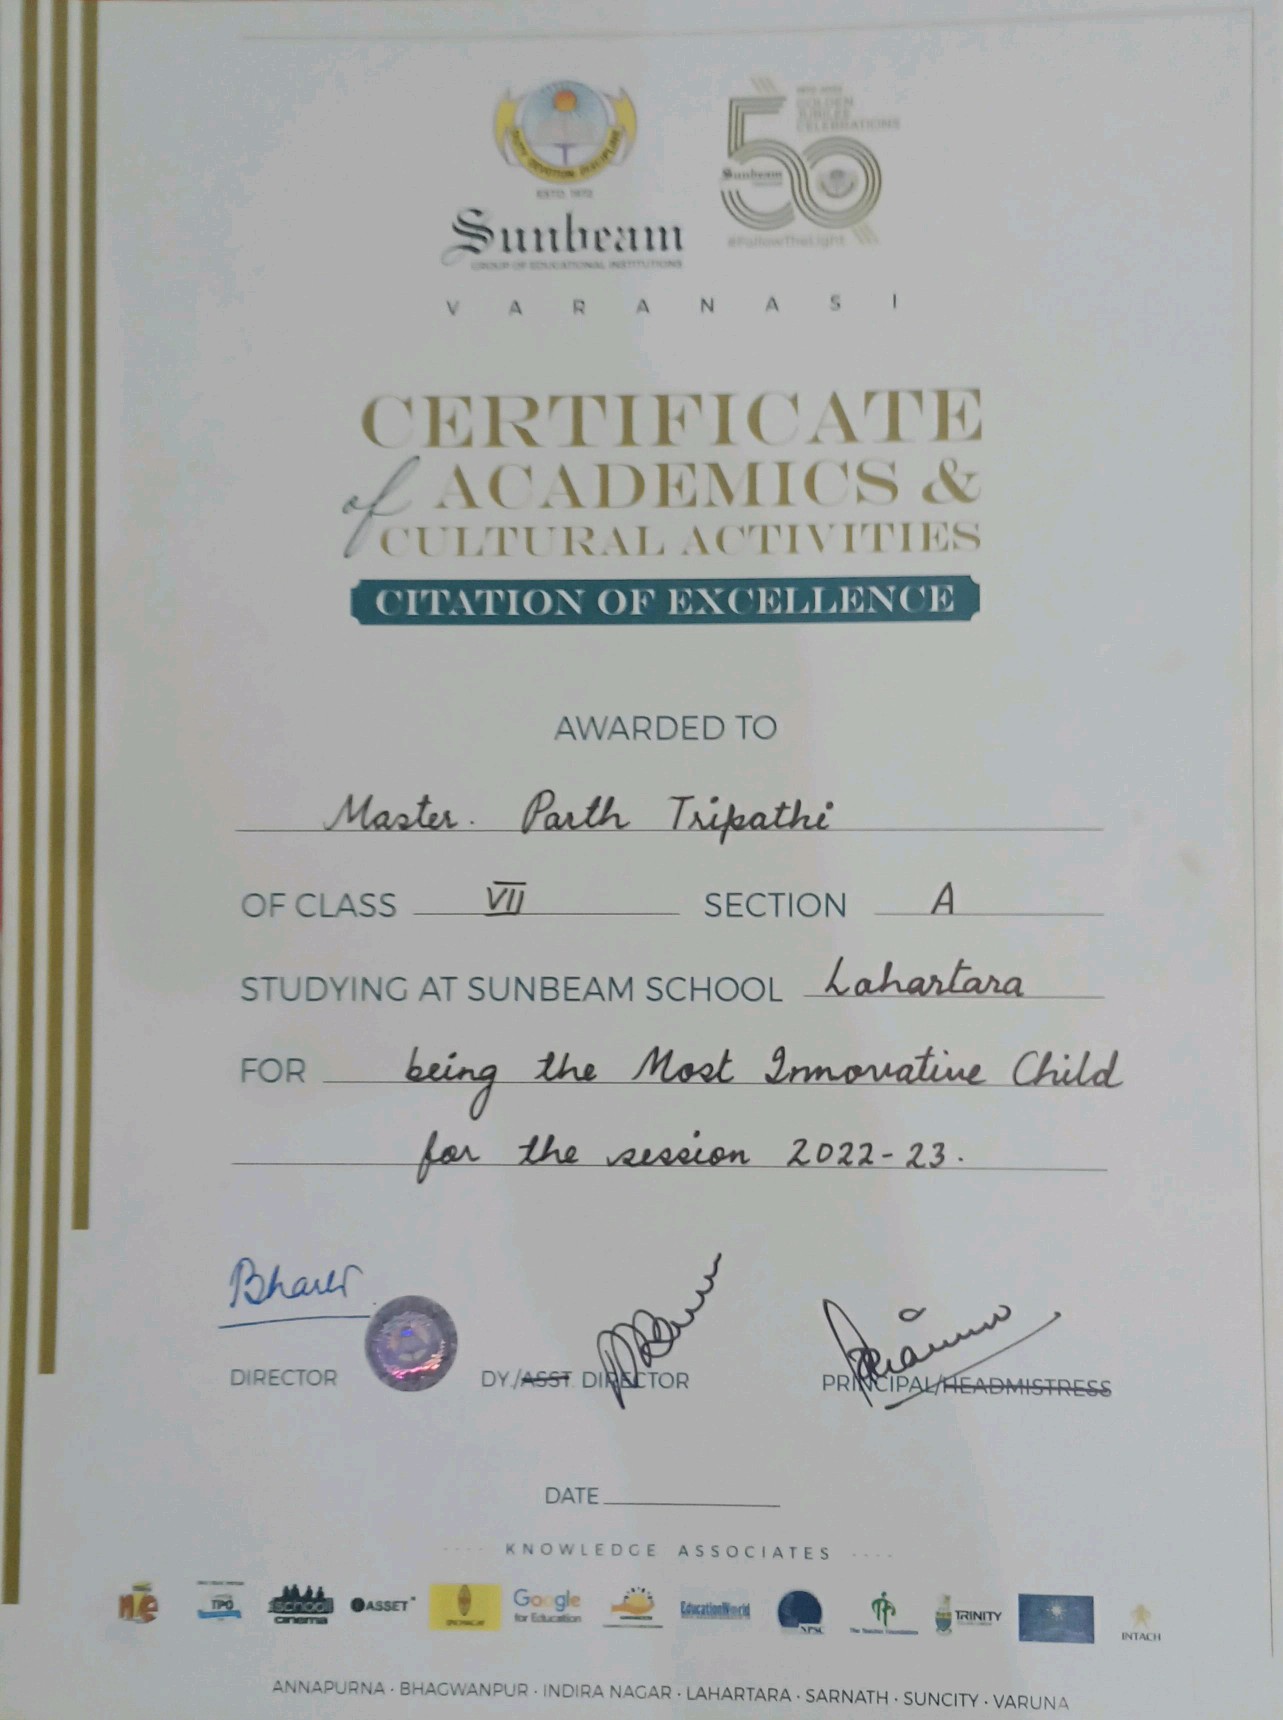 DUTY DEVOTION DISCIPLINE
ESTD. 1972
Sunbeam
GROUP OF EDUCATIONAL INSTITUTIONS
GOLDEN
JUBILEE
CELEBRATIONS
50
Sunbeam
#FollowTheLight
VARANASI
CERTIFICATE
of ACADEMICS &
CULTURAL ACTIVITIES
CITATION OF EXCELLENCE
AWARDED TO
Master. Parth Tripathi
OF CLASS VII SECTION A
STUDYING AT SUNBEAM SCHOOL Lahartara
FOR being the Most Innovative Child
for the session 2022-23.
DIRECTOR DY./ASST. DIRECTOR PRINCIPAL/HEADMISTRESS
DATE
KNOWLEDGE ASSOCIATES
nie TPO school cinema ASSET Google for Education EducationWorld NPSC TRINITY INTACH
ANNAPURNA · BHAGWANPUR · INDIRA NAGAR · LAHARTARA · SARNATH · SUNCITY · VARUNA